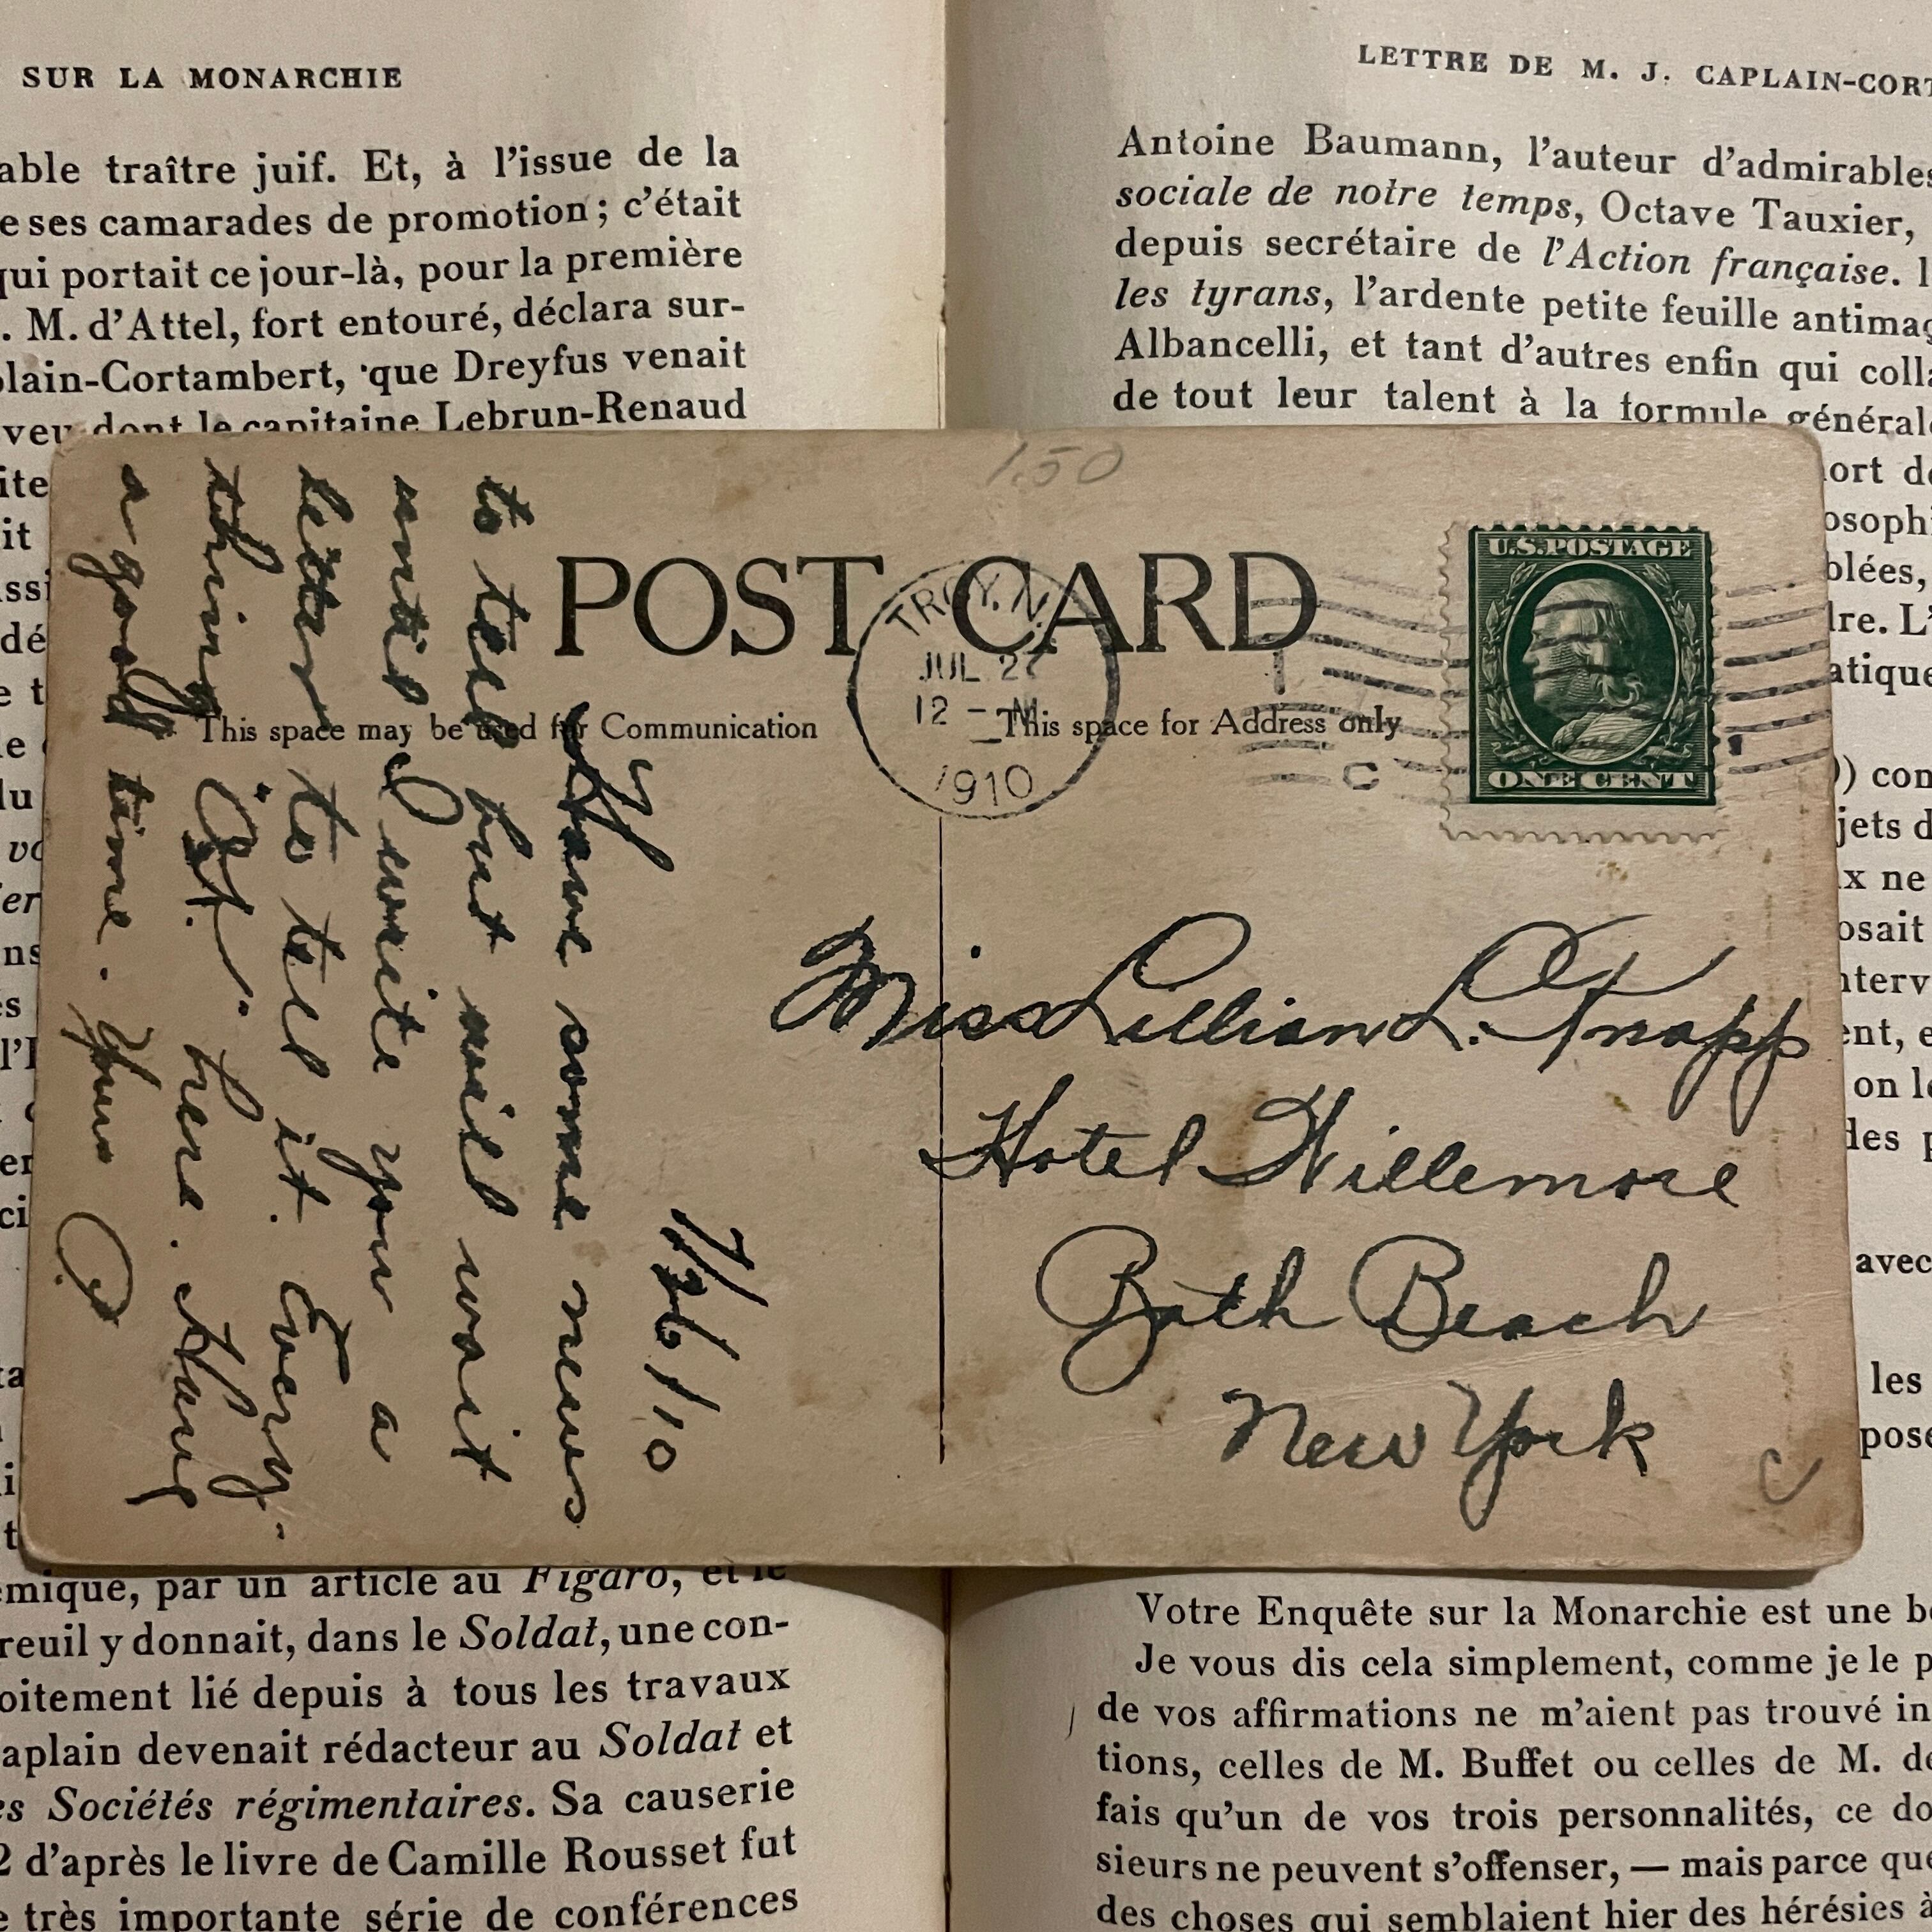 SUR LA MONARCHIE
able traître juif. Et, à l'issue de la
e ses camarades de promotion; c'était
qui portait ce jour-là, pour la première
. M. d'Attel, fort entouré, déclara sur-
plain-Cortambert, que Dreyfus venait
veu dont le capitaine Lebrun-Renaud
LETTRE DE M. J. CAPLAIN-CORT
Antoine Baumann, l'auteur d'admirables
sociale de notre temps, Octave Tauxier,
depuis secrétaire de l'Action française.
les tyrans, l'ardente petite feuille antimaç
Albancelli, et tant d'autres enfin qui colla
de tout leur talent à la formule générale
1.50
POST CARD
This space may be used for Communication
This space for Address only
TROY, N.
JUL 27
12 - M
1910
U.S. POSTAGE
ONE CENT
7/26/10
Have some news
to tell but will wait
until I write you a
letter to tell it. Every-
thing "O.K." here. Having
a good time. Yours
Miss Lillian L. Knapp
Hotel Willemore
Bath Beach
New York
C
émique, par un article au Figaro, et le
reuil y donnait, dans le Soldat, une con-
oitement lié depuis à tous les travaux
aplain devenait rédacteur au Soldat et
es Sociétés régimentaires. Sa causerie
2 d'après le livre de Camille Rousset fut
e très importante série de conférences
Votre Enquête sur la Monarchie est une b
Je vous dis cela simplement, comme je le p
de vos affirmations ne m'aient pas trouvé in
tions, celles de M. Buffet ou celles de M. de
fais qu'un de vos trois personnalités, ce do
sieurs ne peuvent s'offenser, — mais parce que
des choses qui semblaient hier des hérésies à